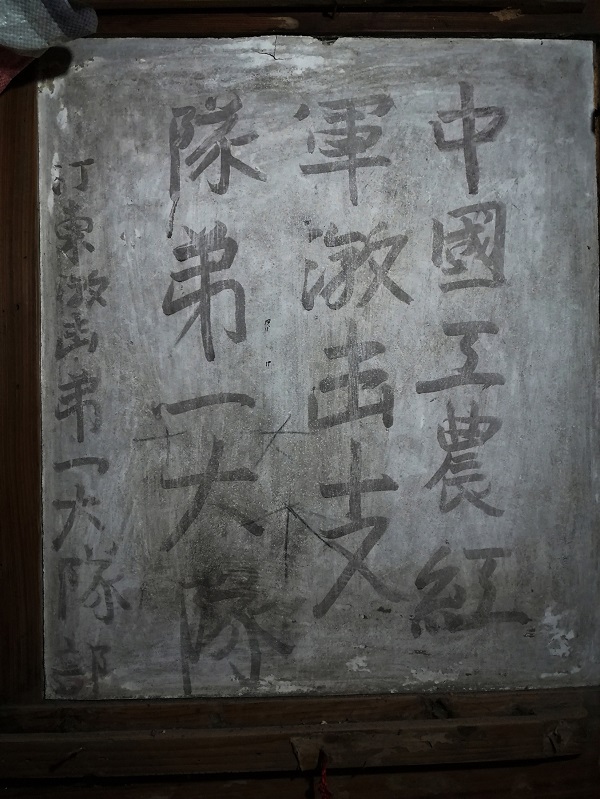 中國工農紅
軍游击支
隊弟一大隊
汀東游击弟一大隊部